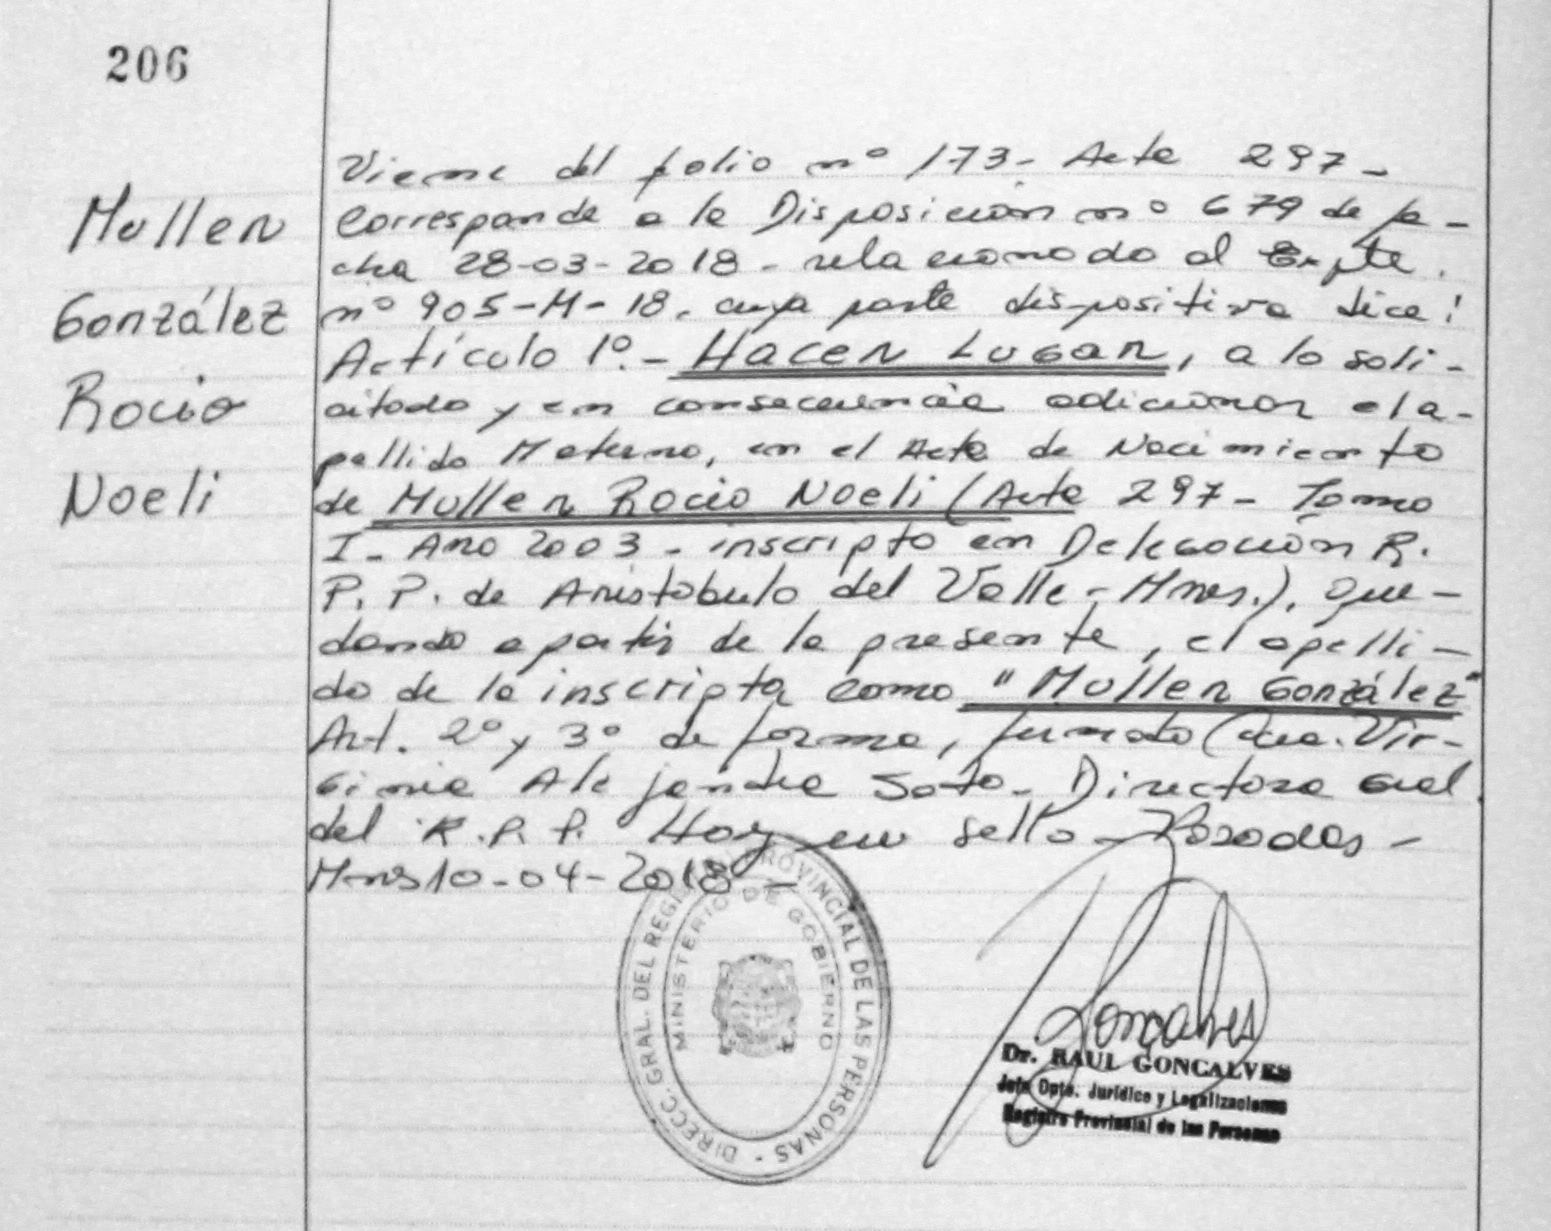 206
Muller
González
Rocio
Noeli
Viene del folio nº 173- Acta 297-
Corresponde a la Disposición nº 679 de fe-
cha 28-03-2018- relacionado al Expte.
nº 905-M-18, cuya parte dispositiva dice:
Artículo 1º.- HACER LUGAR, a lo soli-
citado y en consecuencia adicionar el a-
pellido Materno, en el Acta de Nacimiento
de Muller Rocio Noeli (Acta 297- Tomo
I- Año 2003- inscripto en Delegación R.
P.P. de Aristobulo del Valle-Mnes.), que-
dando a partir de la presente, el apelli-
do de la inscripta como "Muller González"
Art. 2º y 3º de forma, firmato (Dra. Vir-
ginia Alejandra Soto- Directora Gral
del R.P.P. Hay un sello- Posadas-
Mnes 10-04-2018-
DIRECC. GRAL. DEL REGISTRO PROVINCIAL DE LAS PERSONAS -
MINISTERIO DE GOBIERNO
Goncalves
Dr. RAUL GONCALVES
Jefe Dpto. Jurídico y Legalizaciones
Registro Provincial de las Personas